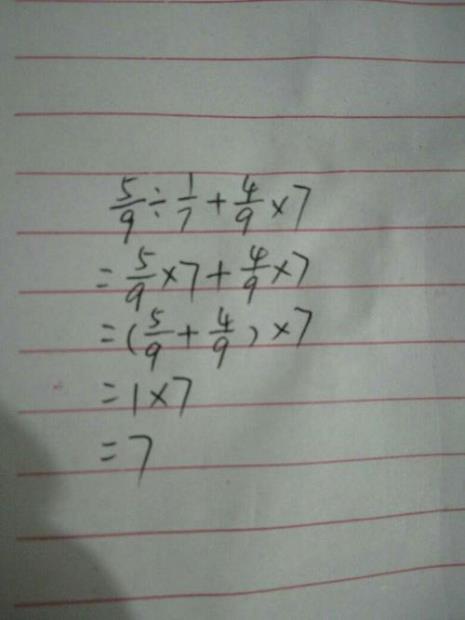 5/9 ÷ 1/7 + 4/9 × 7
= 5/9 × 7 + 4/9 × 7
= (5/9 + 4/9) × 7
= 1 × 7
= 7